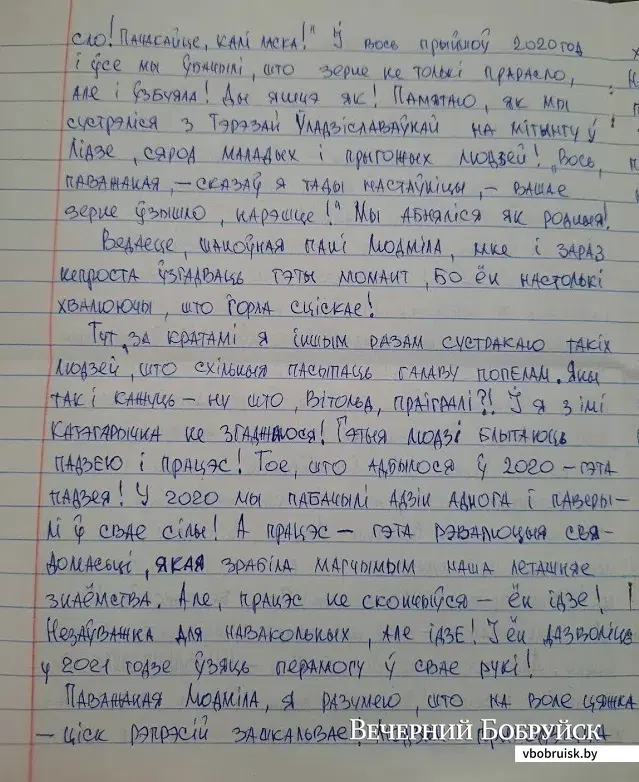 сло! Пачакайце, калі ласка!" І вось прыйшоў 2020 год
і ўсе мы ўбачылі, што зерне не толькі прарасло,
але і ўзбуяла! Ды яшчэ як! Памятаю, як мы
сустрэліся з Тэрэзай Уладзіславаўнай на мітынгу ў
Лідзе, сярод маладых і прыгожых людзей! „Вось,
паважаная, – сказаў я тады настаўніцы, – вашае
зерне ўзышло, нарэшце!" Мы абняліся як родныя!
Ведаеце, шаноўная пані Людміла, мне і зараз
няпроста ўзгадваць гэты момант, бо ён настолькі
хвалюючы, што горла сціскае!
Тут, за кратамі я іншым разам сустракаю такіх
людзей, што схільныя пасыпаць галаву попелам. Яны
так і кажуць – ну што, Вітольд, прайгралі?! І я з імі
катэгарычна не згаджаюся! Гэтыя людзі блытаюць
падзею і працэс! Тое, што адбылося ў 2020 – гэта
падзея! У 2020 мы пабачылі адзін аднога і паверы-
лі ў свае сілы! А працэс – гэта рэвалюцыя свя-
домасьці, якая зрабіла магчымым наша леташняе
знаёмства. Але, працэс не скончыўся – ён ідзе!
Незаўважна для навакольных, але ідзе! І ён дазволіць
у 2021 годзе ўзяць перамогу ў свае рукі!
Паважаная Людміла, я разумею, што на волі цяжка
– ціск рэпрэсій зашкальвае,
Вечерний Бобруйск
vbobruisk.by